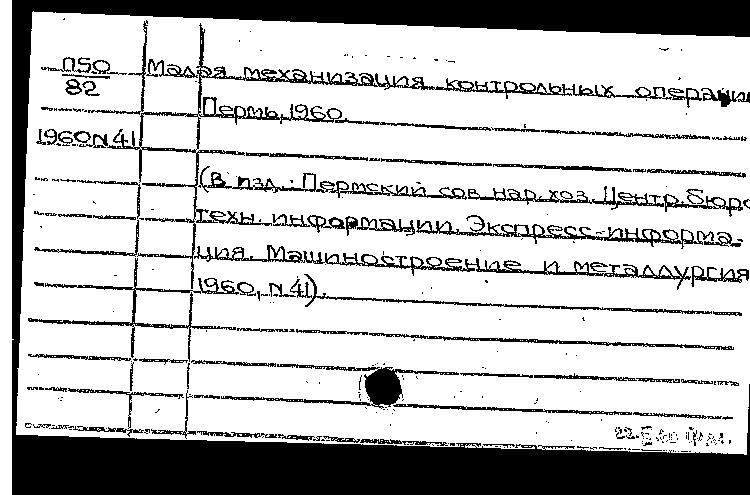 П50
82
1960 N 41
Малая механизация контрольных операций
Пермь, 1960.
(В изд.: Пермский сов. нар. хоз. Центр. бюро
техн. информации. Экспресс-информа-
ция. Машиностроение и металлургия
1960, N 41).